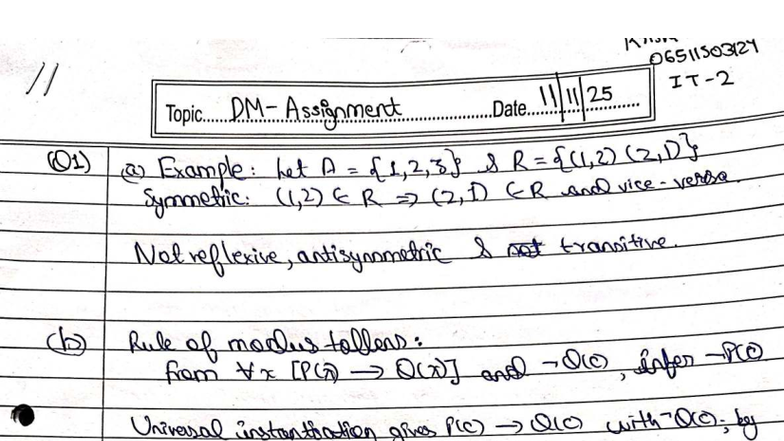 06511503124
IT-2
11
Topic.....DM-Assignment.....Date.....11/11/25
Q1) (a) Example: Let A = {1,2,3} & R = {(1,2) (2,1)}
Symmetric: (1,2) ∈ R ⇒ (2,1) ∈ R and vice-versa.
Not reflexive, antisymmetric & not transitive.
(b) Rule of modus tollens:
from ∀x [P(x) → Q(x)] and ¬Q(c), infer ¬P(c)
Universal instantiation gives P(c) → Q(c) with ¬Q(c); by